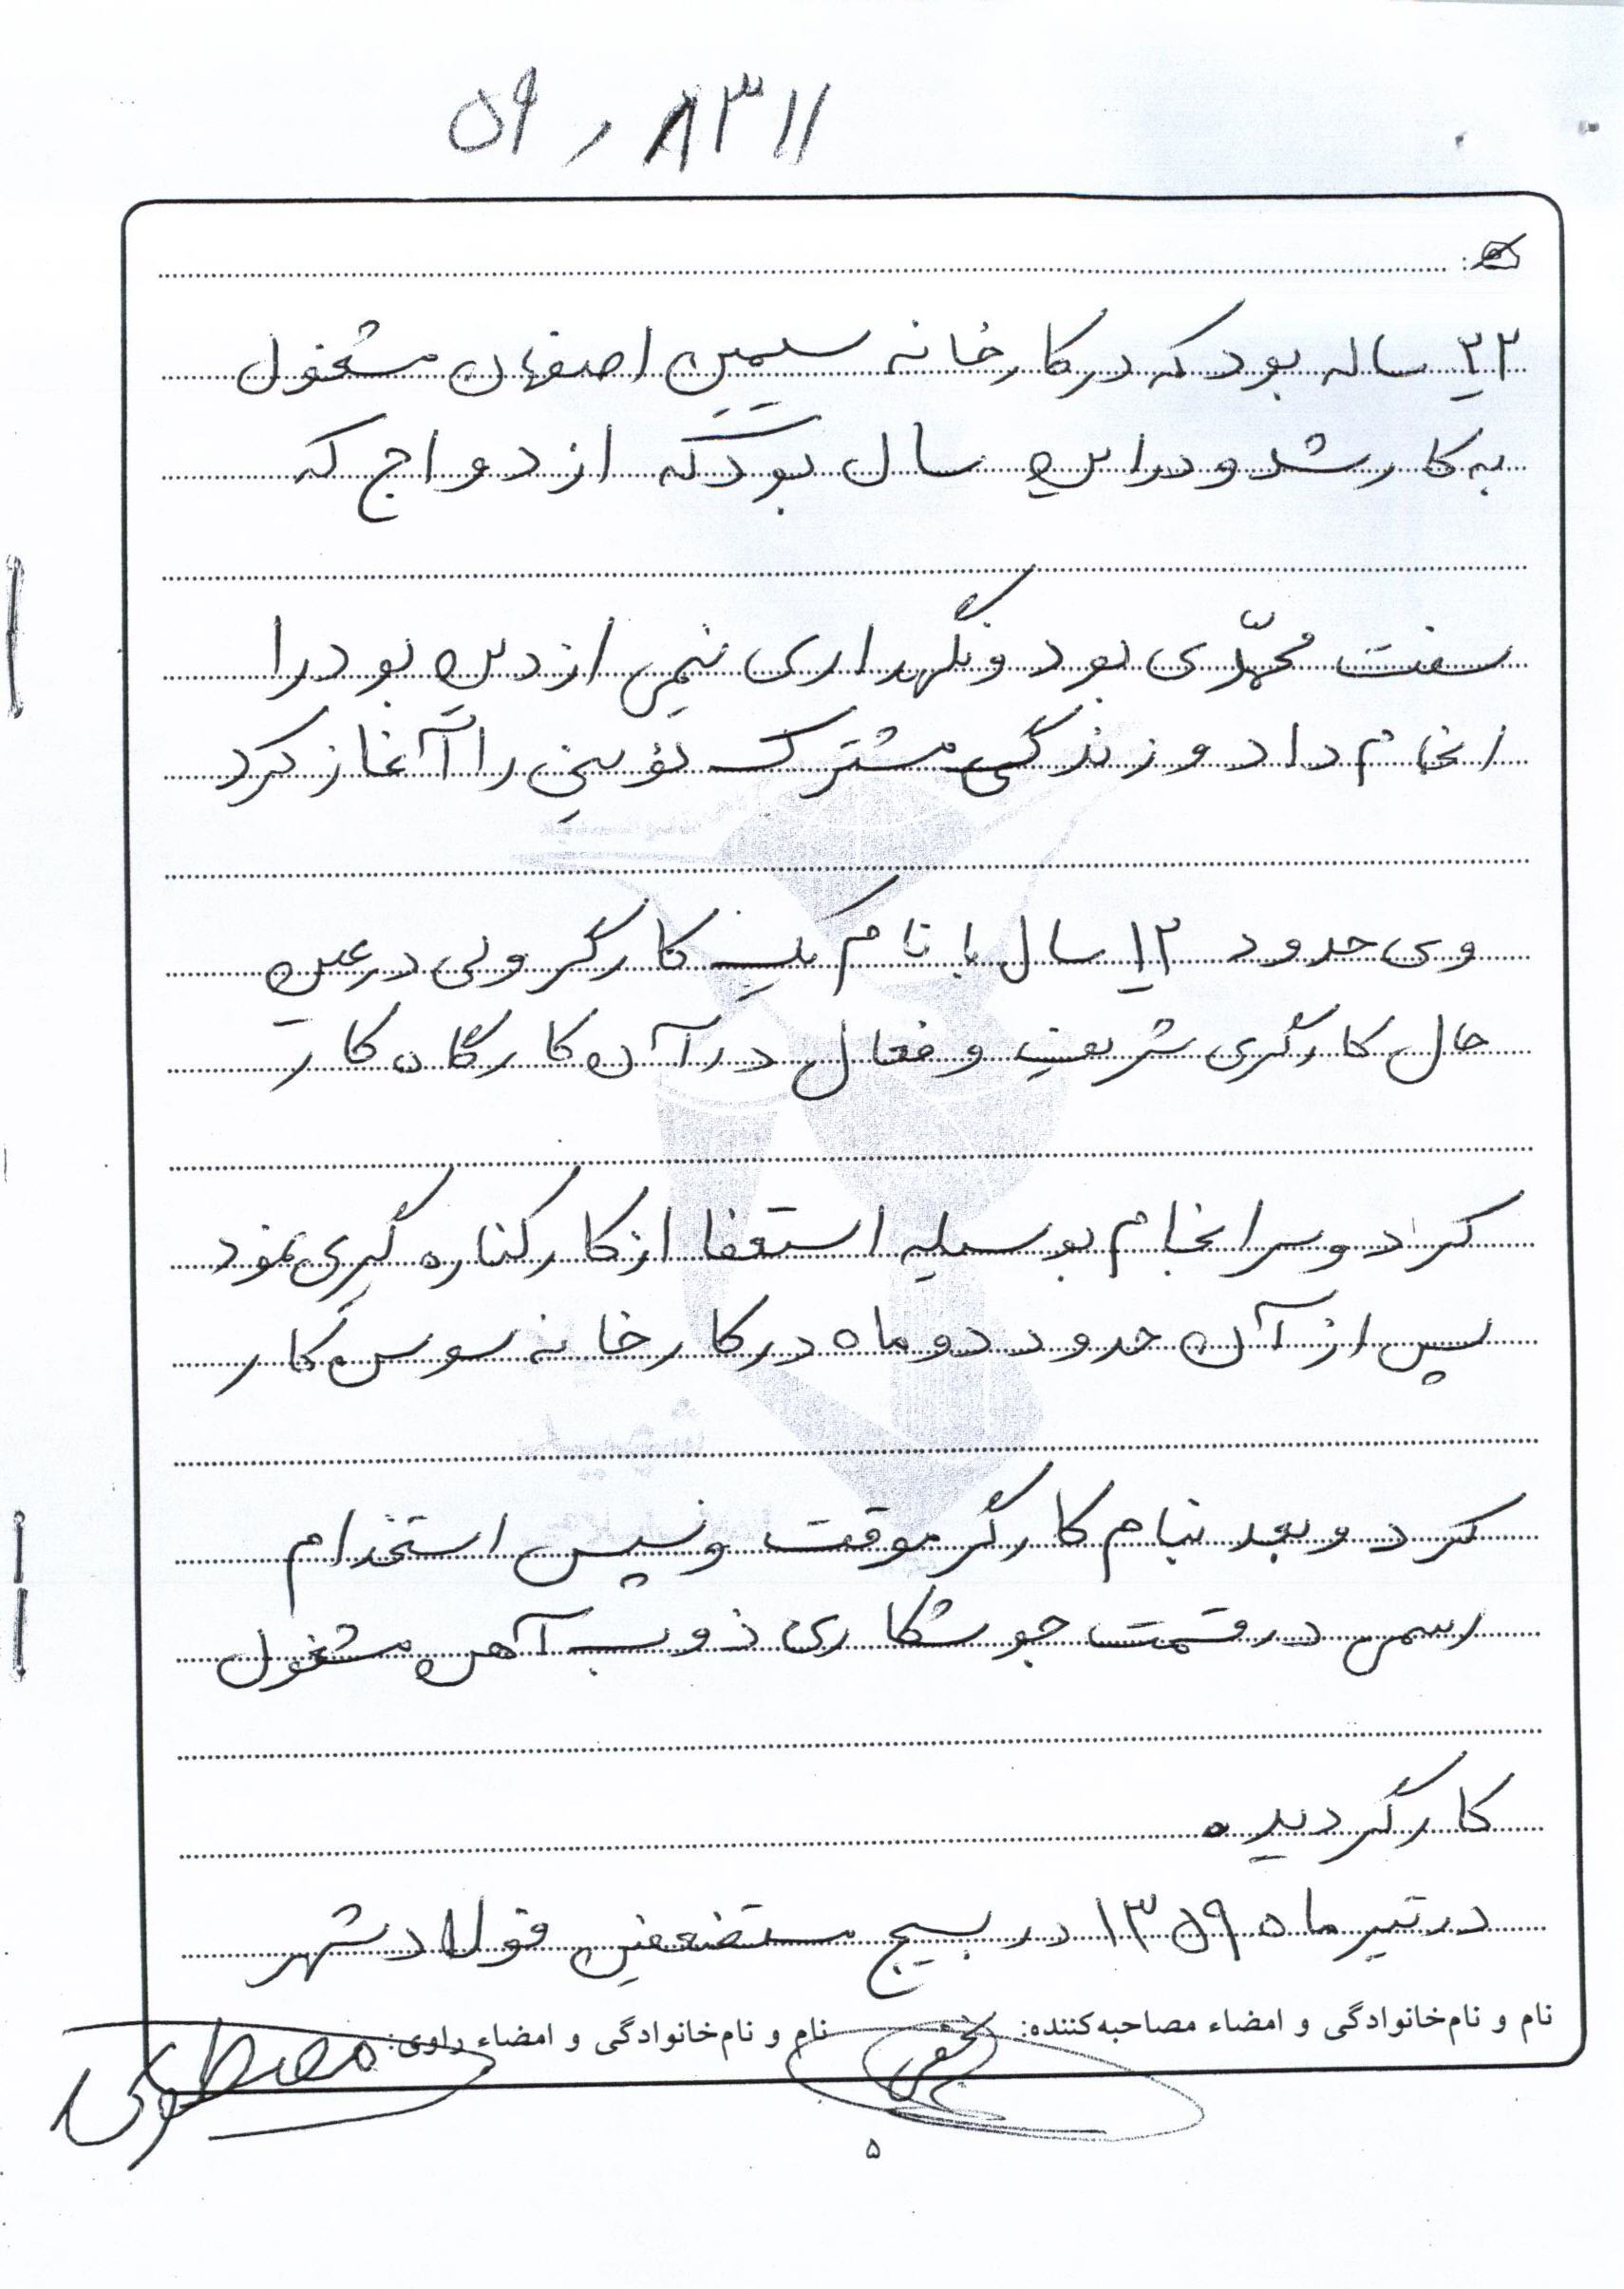 ۵۹ / ۸۳۱۱
۲۲ ساله بود که در کارخانه سیمین اصفهان مشغول
به کار شد و در این سال بود که ازدواج که
سنت محمّدی بود و نگهداری نیمی از دین بود را
انجام داد و زندگی مشترک نوینی را آغاز کرد
وی حدود ۱۲ سال با نام یک کارگر ولی در عین
حال کارگری شریف و فعال در آن کارگاه کار
کرد و سرانجام بوسیله استعفا از کار کناره گیری نمود
پس از آن حدود دو ماه در کارخانه سوس کار
کرد و بعد بنام کارگر موقت و سپس استخدام
رسمی در قسمت جوشکاری ذوب آهن مشغول
کار گردید.
در تیر ماه ۱۳۵۹ در بسیج مستضعفین فولادشهر
نام و نام‌خانوادگی و امضاء مصاحبه‌کننده:
نام و نام‌خانوادگی و امضاء راوی: مصطفی
۵